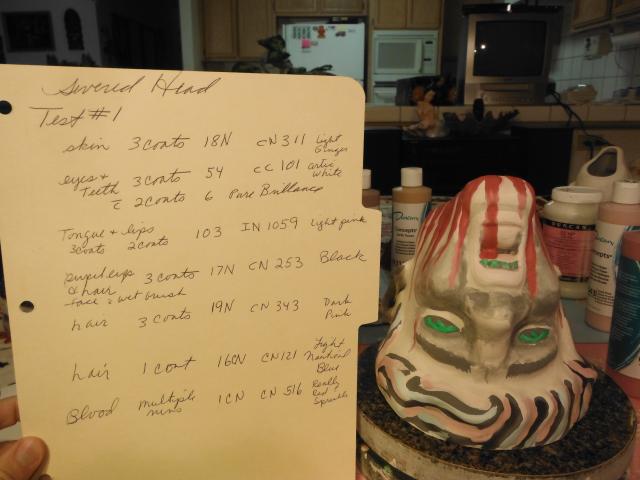 Severed Head
Test #1
skin 3 coats 18N CN 311 Light Ginger
eyes + Teeth 3 coats 54 CC 101 artic White
c̄ 2 coats 6 Pure Brilliance
Tongue + lips 103 IN 1059 Light pink
3 coats 2 coats
3 coats 17N CN 253 Black
& hair
face = wet brush
hair 3 coats 19N CN 343 Dark Pink
hair 1 coat 160N CN 121 Light Nautical Blue
Blood multiple runs 1CN CN 516 Really Red Sprinkles
Duncan
Concepts
DUNCAN
Concepts